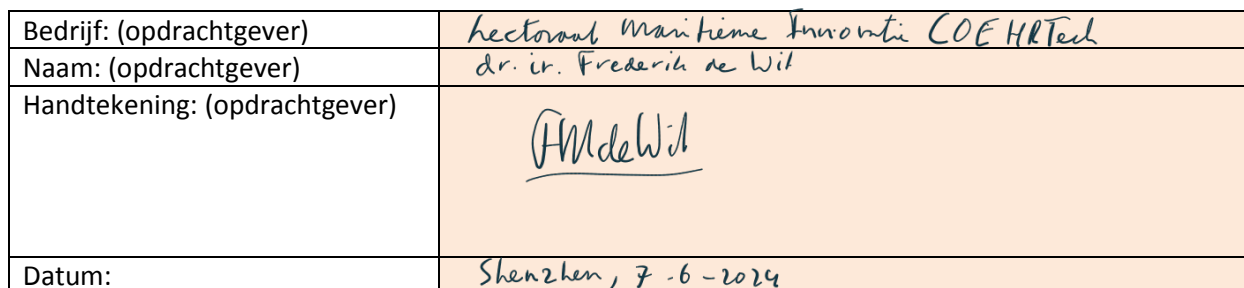 Bedrijf: (opdrachtgever) Lectoraat Maritieme Innovatie COE HRTech
Naam: (opdrachtgever) dr. ir. Frederik de Wit
Handtekening: (opdrachtgever) FMdeWit
Datum: Shenzhen, 7-6-2024